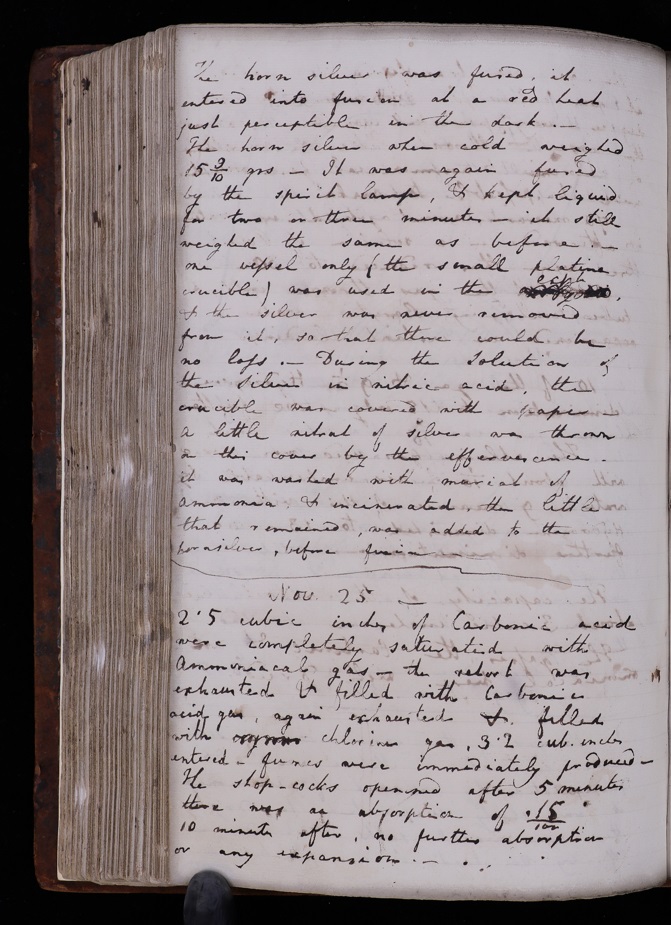 The horn silver was fused, it
entered into fusion at a red heat
just perceptible in the dark. —
The horn silver when cold weighed
15 9/10 grs — It was again fused
by the spirit lamp, & kept liquid
for two or three minutes — it still
weighed the same as before —
one vessel only (the small platina
crucible) was used in the expt,
& the silver was never removed
from it, so that there could be
no loss. — During the solution of
the silver in nitric acid, the
crucible was covered with paper —
a little nitrat of silver was thrown
on this cover by the effervescence.
it was washed with muriat of
ammonia & incinerated, the little
that remained, was added to the
hornsilver, before fusion —
Nov. 25 —
2.5 cubic inches of Carbonic acid
were completely saturated with
Ammoniacal gas — the retort was
exhausted & filled with Carbonic
acid gas, again exhausted & filled
with chlorine gas, 3.2 cub. inches
entered — fumes were immediately produced —
The stop-cocks openned after 5 minutes
there was an absorption of .15/100
10 minutes after, no further absorption
or any expansion. —